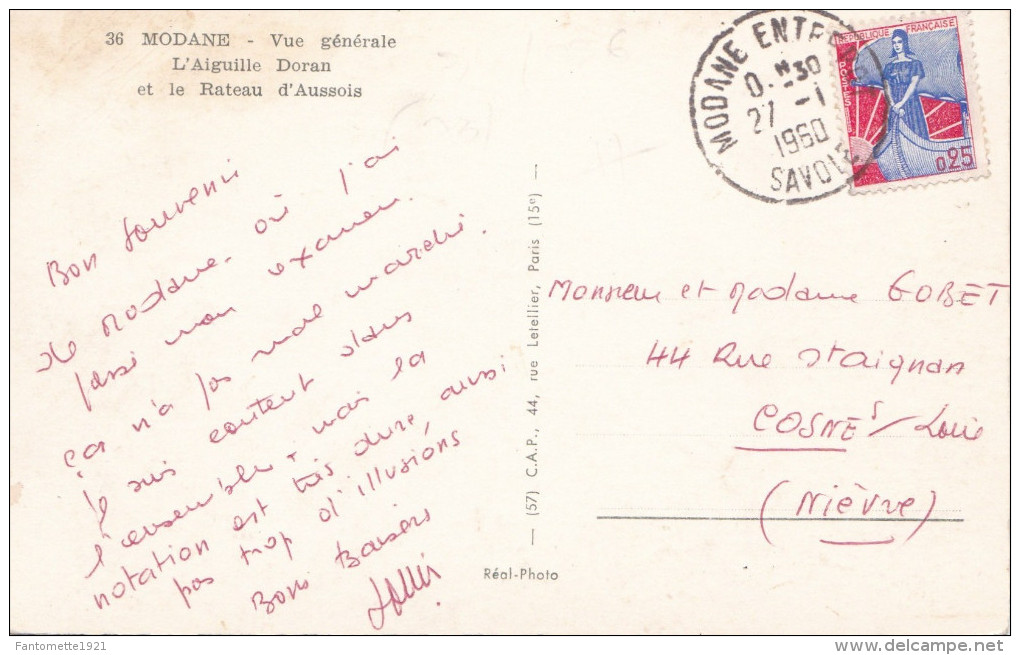 36 MODANE - Vue générale
L'Aiguille Doran
et le Rateau d'Aussois
MODANE ENTREPOT
0 H 30
27 - 1
1960
SAVOIE
RÉPUBLIQUE FRANÇAISE
POSTES
0,25
Bon souvenir
de Modane où j'ai
passé mon examen.
ça n'a pas mal marché.
Je suis content dans
l'ensemble mais la
notation est très dure, aussi
pas trop d'illusions
Bons Baisers
(57) C.A.P., 44, rue Letellier, Paris (15e)
Réal-Photo
Monsieur et Madame GOBET
44 Rue St Aignan
COSNE s/ Loire
(Nièvre)
Fantomette1921
www.delcampe.net